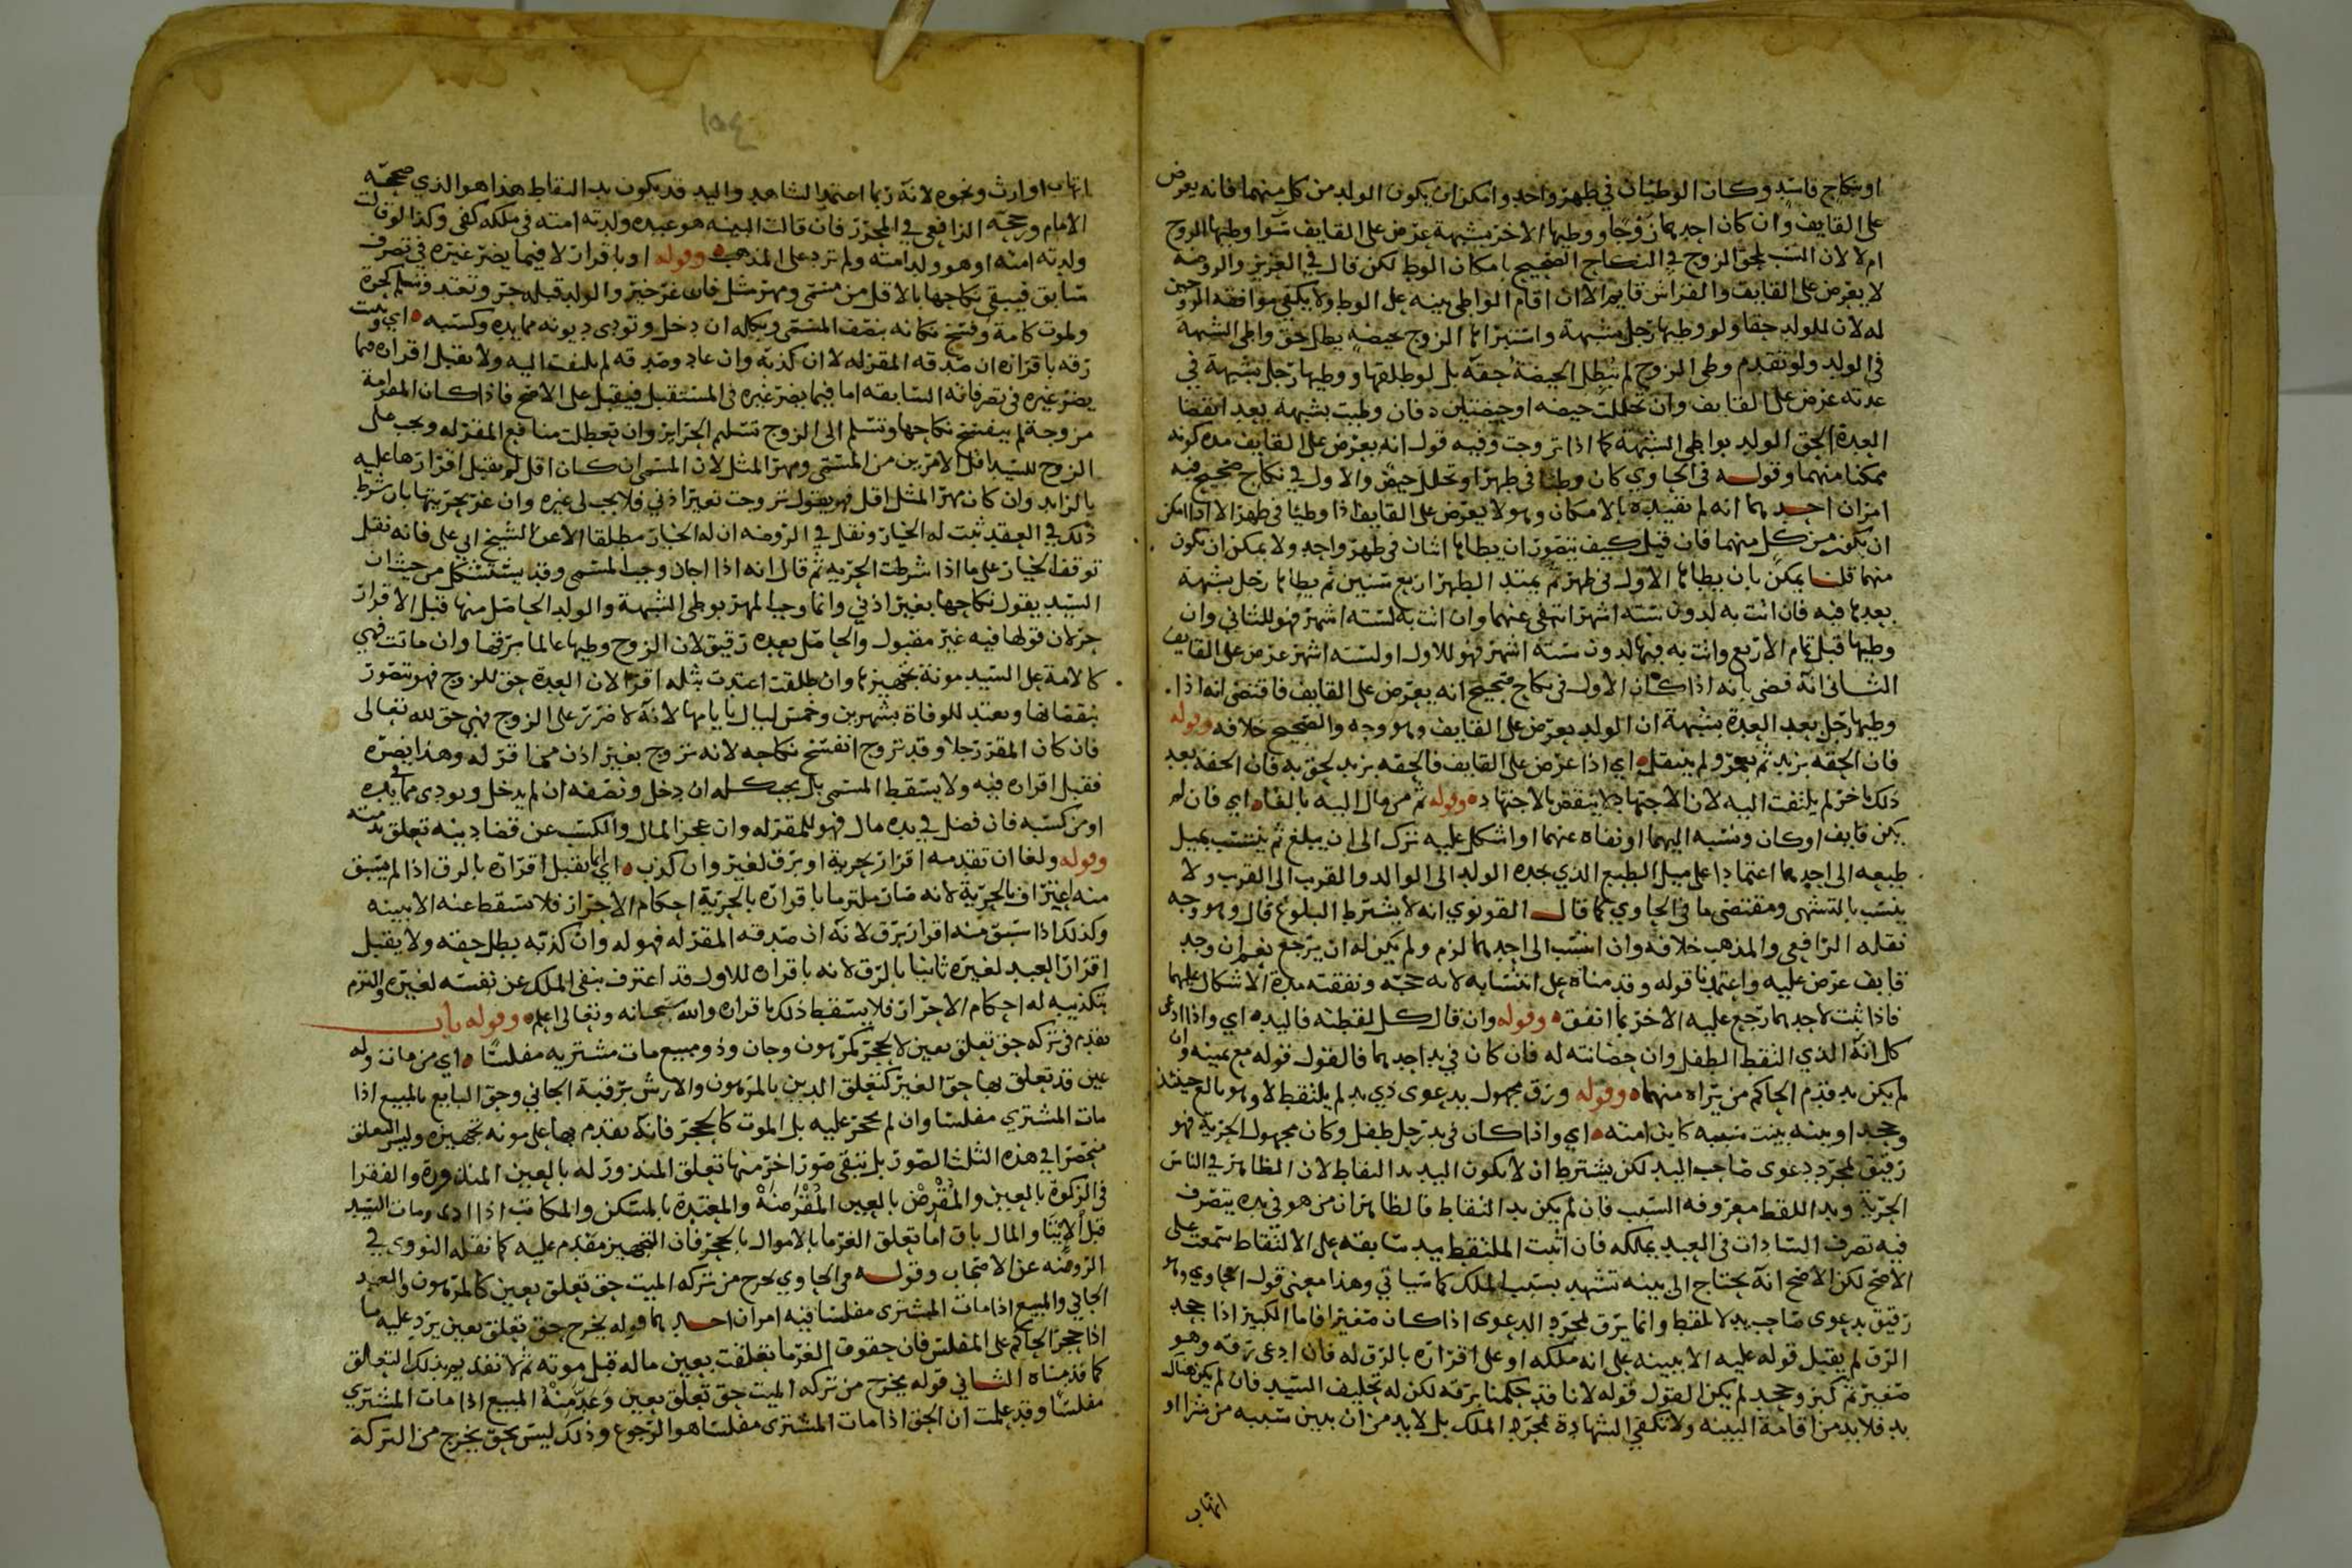 او نكاح فاسد وكان الوطيان في طهر واحد وامكن ان يكون الولد من كل منهما فانه يعرض
على القايف وان كان احدهما زوجا ووطيها الاخر بشبهة عرض على القايف سوا وطيها الزوج
ام لا لان النسب يلحق الزوج في النكاح الصحيح بامكان الوطي لكن قال في العزيز والروضة
لا يعرض على القايف والفراش قايم الا ان اقام الواطي بينه على الوطي ولا يكفي موافقة الزوجين
له لان للولد حقا ولو وطيها رجل بشبهة واستبراها الزوج بحيضة يطل حق واطي الشبهة
في الولد ولو تقدم وطي الزوج لم تبطل الحيضة حقه بل لو طلقها ووطيها رجل بشبهة في
عدته عرض على القايف وان تخللت حيضه او حيضتين فان وطيت بشبهة بعد انقضا
العدة الحق الولد بواطي الشبهة كما اذا تزوجت وفيه قول انه يعرض على القايف مدة كونه
ممكنا منهما وقوله في الحاوي كان وطئا في طهر او تخلل حيض والاول في نكاح صحيح فيه
امران احدهما انه لم يقيده بالامكان وهو لا يعرض على القايف اذا وطئا في طهر الا اذا امكن
ان يكون من كل منهما فان قيل كيف يتصور ان يطاها اثنان في طهر واحد ولا يمكن ان يكون
منهما قلنا يمكن بان يطاها الاول في طهر ثم يمتد الطهر اربع سنين ثم يطاها رجل بشبهة
بعدها فيه فان اتت به لدون ستة اشهر انتفى عنهما وان اتت به لستة اشهر فهو للثاني وان
وطيها قبل تمام الاربع واتت به فيها لدون ستة اشهر فهو للاول او لستة اشهر عرض على القايف
الثاني انه قضى بانه اذا كان الاول في نكاح صحيح انه يعرض على القايف فاقتضى انه اذا
وطيها رجل بعد العدة بشبهة ان الولد يعرض على القايف وهو وجه والصحيح خلافه وقوله
فان الحقه بزيد ثم بعمرو لم ينتقل اي اذا عرض على القايف فالحقه بزيد لحق به فان الحقه بعد
ذلك باخر لم يلتفت اليه لان الاجتهاد لا ينقض بالاجتهاد وقوله ثم من مال اليه بالغا اي فان لم
يكن قايف او كان ونسبه اليهما او نفاه عنهما او اشكل عليه ترك الى ان يبلغ ثم ينتسب بميل
طبعه الى احدهما اعتمادا على ميل الطبع الذي يجده الولد الى الوالد والقريب الى القريب ولا
ينتسب بالتشهي ومقتضى ما في الحاوي كما قال القونوي انه لا يشترط البلوغ قال وهو وجه
نقله الرافعي والمذهب خلافه وان انتسب الى احدهما لزم ولم يكن له ان يرجع نعم ان وجد
قايف عرض عليه واعتمدنا قوله وقدمناه على انتسابه لانه حجة ونفقته مدة الاشكال عليهما
فاذا ثبت لاحدهما رجع عليه الاخر بما انفق وقوله وان قال كل لقطته فاليد اي واذا ادعى
كل انه الذي التقط الطفل وان حضانته له فان كان في يد احدهما فالقول قوله مع يمينه وان
لم يكن يد قدم الحاكم من يراه منهما وقوله ورق مجهول بدعوى ذي يد لم يلتقط لا وهو بالغ حينئذ
وجحد او بينه بينت سببه كابن امته اي واذا كان في يد رجل طفل وكان مجهول الحرية فهو
رقيق بمجرد دعوى صاحب اليد لكن يشترط ان لا يكون اليد يد التقاط لان الظاهر في الناس
الحرية ويد اللقط معروفه السبب فان لم يكن يد التقاط فالظاهر ان من هو في يده يتصرف
فيه تصرف السادات في العبيد يملكه فان اثبت الملتقط بيد سابقه على الالتقاط سمعت على
الاصح لكن الاصح انه يحتاج الى بينه تشهد بسبب الملك كما سياتي وهذا معنى قول الحاوي وهو
رقيق بدعوى صاحب يد لا لقط وانما يرق بمجرد الدعوى اذا كان صغيرا فاما الكبير اذا جحد
الرق لم يقبل قوله عليه الا ببينه على انه ملكه او على اقراره بالرق له فان ادعى رقه وهو
صغير ثم كبر وجحد لم يكن القول قوله لانا قد حكمنا برقه لكن له تحليف السيد فان لم يكن هناك
يد فلا بد من اقامة البينه ولا تكفي الشهادة بمجرد الملك بل لا بد من ان يبين سببه من شرا او
اتهاب
اتهاب او ارث ونحوه لانه ربما اعتمد الشاهد واليد قد يكون يد التقاط هذا هو الذي صححه
الامام ورجحه الرافعي في المحرر فان قالت البينه هو عبده ولدته امته في ملكه كفى وكذا لو قالت
ولدته امته او هو ولد امته ولم ترد على المذهب وقوله او باقرار لا فيما يضر غيره في تصرف
سابق فيبقى نكاحها بالاقل من مسمى ومهر مثل فان غر خير والولد قبله حر وتعتد وتسلم كحرة
ولموت كامة وفسخ نكاحه بنصف المسمى وبكله ان دخل وتودى ديونه مما بيده وكسبه اي ويثبت
رقه باقراره ان صدقه المقر له لا ان كذبه وان عاد وصدقه لم يلتفت اليه ولا يقبل اقراره فيما
يضر غيره في تصرفاته السابقه اما فيما يضر غيره في المستقبل فيقبل على الاصح فاذا كان المقر امة
مزوجة لم ينفسخ نكاحها وتسلم الى الزوج تسليم الحراير وان تعطلت منافع المقر له ويجب على
الزوج للسيد اقل الامرين من المسمى ومهر المثل لان المسمى ان كان اقل لم يقبل اقرارها عليه
بالزايد وان كان مهر المثل اقل فهو يقول تزوجت بغير اذني فلا يجب لي غيره وان غر بحريتها بان شرط
ذلك في العقد ثبت له الخيار ونقل في الروضه ان له الخيار مطلقا الا عن الشيخ ابي علي فانه نقل
توقف الخيار على ما اذا شرطت الحريه ثم قال انه اذا اجاز وجب المسمى وقد يستشكل من حيث ان
السيد يقول نكاحها بغير اذني وانما وجب المهر بوطي الشبهة والولد الحاصل منها قبل الاقرار
حر لان قولها فيه غير مقبول والحاصل بعده رقيق لان الزوج وطيها عالما برقها وان ماتت فهي
كالامة على السيد مونة تجهيزها وان طلقت اعتدت بثلاثة اقرا لان العدة حق للزوج فهو يتضرر
بنقصانها وتعتد للوفاة بشهرين وخمس ليال بايامها لانه لا ضرر على الزوج فهي حق لله تعالى
فان كان المقر رجلا وقد تزوج انفسخ نكاحه لانه تزوج بغير اذن ممن اقر له وهذا يضره
فقبل اقراره فيه ولا يسقط المسمى بل يجب كله ان دخل ونصفه ان لم يدخل ويودى مما في يده
او من كسبه فان فضل في يده مال فهو للمقر له وان عجز المال والكسب عن قضا دينه تعلق بذمته
وقوله ولغا ان تقدمه اقرار بحرية او برق لغير وان كذب اي انما يقبل اقراره بالرق اذا لم يسبق
منه اعتراف بالحرية لانه صار ملتزما باقراره بالحرية احكام الاحرار فلا يسقط عنه الا ببينه
وكذلك اذا سبق منه اقرار برق لانه ان صدقه المقر له فهو له وان كذبه بطل حقه ولا يقبل
اقرار العبد لغيره ثانيا بالرق لانه باقراره للاول قد اعترف بنفي الملك عن نفسه لغيره والتزم
بتكذيبه له احكام الاحرار فلا يسقط ذلك باقراره والله سبحانه وتعالى اعلم وقوله باب
يقدم في تركه حق تعلق بعين لا بحجر كمرهون وجان وذو ومبيع مات مشتريه مفلسا اي من مات وله
عين قد تعلق بها حق الغير كتعلق الدين بالمرهون والارش برقبة الجاني وحق البايع بالمبيع اذا
مات المشتري مفلسا وان لم يحجر عليه بل الموت كالحجر فانه يقدم بها على مونة تجهيزه وليس التعلق
منحصرا في هذه الثلث الصور بل تبقى صور اخر منها تعلق المنذور له بالعين المنذورة والفقرا
في الزكوة بالعين والمقرض بالعين المقرضة والمعتدة بالمسكن والمكاتب اذا ادى ومات السيد
قبل الايتا والمال باق اما تعلق الغرما بالاموال بالحجر فان التجهيز مقدم عليه كما نقله النووي في
الروضه عن الاصحاب وقوله في الحاوي يخرج من تركة الميت حق تعلق بعين كالمرهون والعبد
الجاني والمبيع اذا مات المشتري مفلسا فيه امران احدهما قوله يخرج حق تعلق بعين يرد عليه ما
اذا حجر الحاكم على المفلس فان حقوق الغرما تعلقت بعين ماله قبل موته ثم لا تقدم بذلك التعلق
كما قدمناه الثاني قوله يخرج من تركة الميت حق تعلق بعين وعد منه المبيع اذا مات المشتري
مفلسا وقد علمت ان الحق اذا مات المشتري مفلسا هو الرجوع وذلك ليس بحق يخرج من التركة